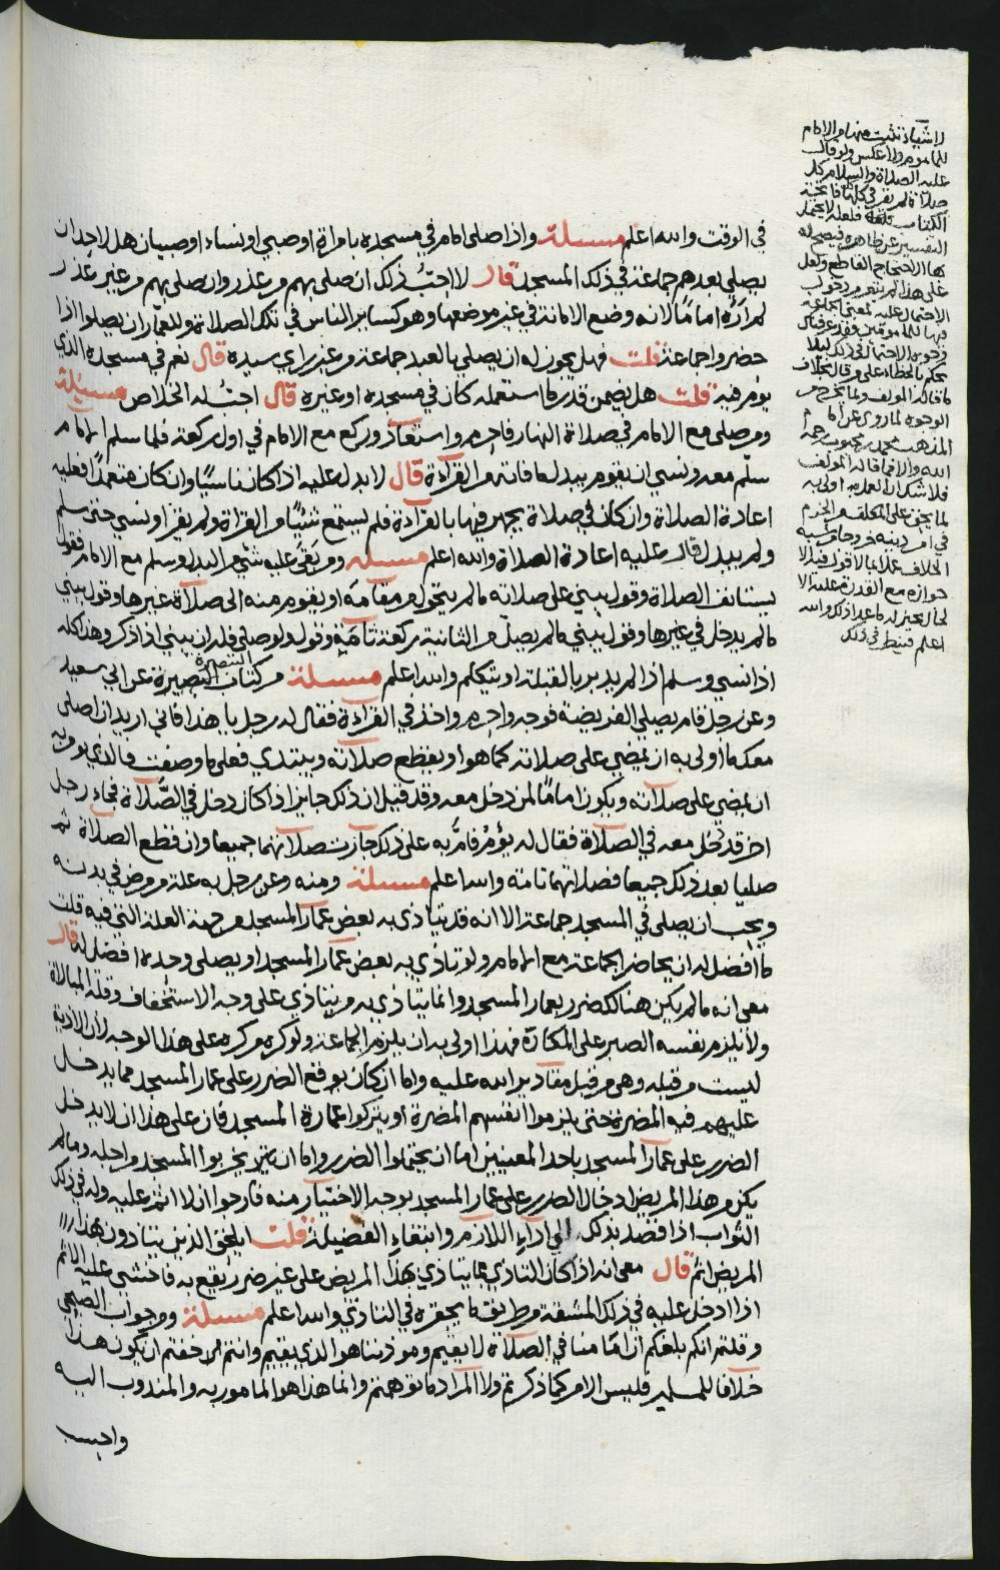 في الوقت والله اعلم مسئلة واذا صلى امام في مسجده بامراة او صبي او نساء او صبيان هل لاحد ان
يصلي بعدهم جماعة في ذلك المسجد قال لا احب ذلك ان صلى بهم من عذر وان صلى بهم من غير عذر
لم اره اماما لانه وضع الامانة في غير موضعها وهو كسائر الناس في تلك الصلاة وللعمار ان يصلوا اذا
حضروا جماعة قلت فهل يجوز له ان يصلي بالعبد جماعة من غير راي سيده قال نعم في مسجده الذي
يؤم فيه قلت هل يضمن قدر ما استعمله كان في مسجده او غيره قال احب له الخلاص مسئلة
ومن صلى مع الامام في صلاة النهار فاحرم واستعاذ وركع مع الامام في اول ركعة فلما سلم الامام
سلم معه ونسي ان يقوم يبدل ما فاته من القراءة قال لا بدل عليه اذا كان ناسيا وان كان متعمدا فعليه
اعادة الصلاة وان كان في صلاة يجهر فيها بالقراءة فلم يستمع شيئا من القراة ولم يقرا ونسي حتى سلم
ولم يبدل قال عليه اعادة الصلاة والله اعلم مسئلة ومن بقي عليه شيء من البدل وسلم مع الامام فقول
يستانف الصلاة وقول يبني على صلاته ما لم يتحول من مقامه او يقوم منه الى صلاة غيرها وقول يبني
ما لم يدخل في غيرها وقول يبني ما لم يصل من الثانية ركعة تامة وقول ولو صلى فله ان يبني اذا ذكر وهذا كله
اذا نسي وسلم اذا لم يدبر بالقبلة او يتكلم والله اعلم مسئلة من كتاب التبصرة عن ابي سعيد
وعن رجل قام يصلي الفريضة فوجه واحرم واخذ في القراءة فقال له رجل يا هذا قاني اريد ان اصلي
معك ما اولى به ان يمضي على صلاته كما هو او يقطع صلاته ويبتدي فعلى ما وصفت فالذي يؤمر به
ان يمضي على صلاته ويكون اماما لمن دخل معه وقد قيل ان ذلك جايز اذا كان دخل في الصلاة فجاء رجل
اخر قد دخل معه في الصلاة فقال له يؤم فام به على ذلك جازت صلاتهما جميعا وان قطع الصلاة ثم
صليا بعد ذلك جميعا فصلاتهما تامة والله اعلم مسئلة ومنه وعن رجل به علة ومرض في بدنه
ويحب ان يصلي في المسجد جماعة الا انه قد يتاذى به بعض عمار المسجد من جهة العلة التي فيه قلت
ما افضل له ان يحاضر الجماعة مع الامام ولو تاذى به بعض عمار المسجد او يصلي وحده افضل له قال
معي انه ما لم يكن هنالك ضرر بعمار المسجد وانما يتاذى به من يتاذى على وجه الاستخفاف وقلة المبالاة
ولا يلزم نفسه الصبر على المكاره فهذا اولى به ان يلزم الجماعة ولو كره من كره على هذا الوجه لان الاذية
ليست من قبله وهي من قبل مقادير الله عليه واما ان كان يوقع الضرر على عمار المسجد مما يدخل
عليهم فيه المضرة حتى يلزموا انفسهم المضرة او يتركوا عمارة المسجد فان على هذا ان لا يدخل
الضرر على عمار المسجد باحد المعنيين اما ان يحتملوا الضرر واما ان يخربوا المسجد من اجله وما لم
يكن من هذا المريض ادخال الضرر على عمار المسجد بوجه الاختيار منه فارجوا ان لا اثم عليه وله في ذلك
الثواب اذا قصد بذلك الى اداء اللازم وابتغاء الفضيلة قلت ايلحق الذين يتاذون بهذا
المريض اثم قال معي انه اذا كان التاذي مما يتاذى بهذا المريض على غير ضرر يقع به فاخشى عليه الاثم
اذا ادخل عليه في ذلك المشقة من طريق ما يحقره في التاذي والله اعلم مسئلة ومن جواب الصبحي
وقلتم انكم بلغكم ان اماما منا في الصلاة لا يقيم ومؤذننا هو الذي يقيم وانتم خفتم ان يكون هذا
خلافا للمسلمين فليس الامر كما ذكرتم ولا المراد ما توهمتم وانما هذا هو المامور به والمندوب اليه
واحسب
للماموم ولا عكس ولو قال
عليه الصلاة والسلام كل
صلاة لم يقرا فيها بفاتحة
التفسير عن ظاهره فيصح له
هذا الاحتجاج القاطع ولعل
يحكم بالخطاء على من قال بخلاف
ما قاله المولف ولما يخرج من
الوجوه لما روي عن امام
المذهب محمد بن محبوب رحمه
الله والا فما قاله المولف
فلا شك ان العمل به اولى به
جوازه مع القدرة عليه الا
اعلم فينظر في ذلك